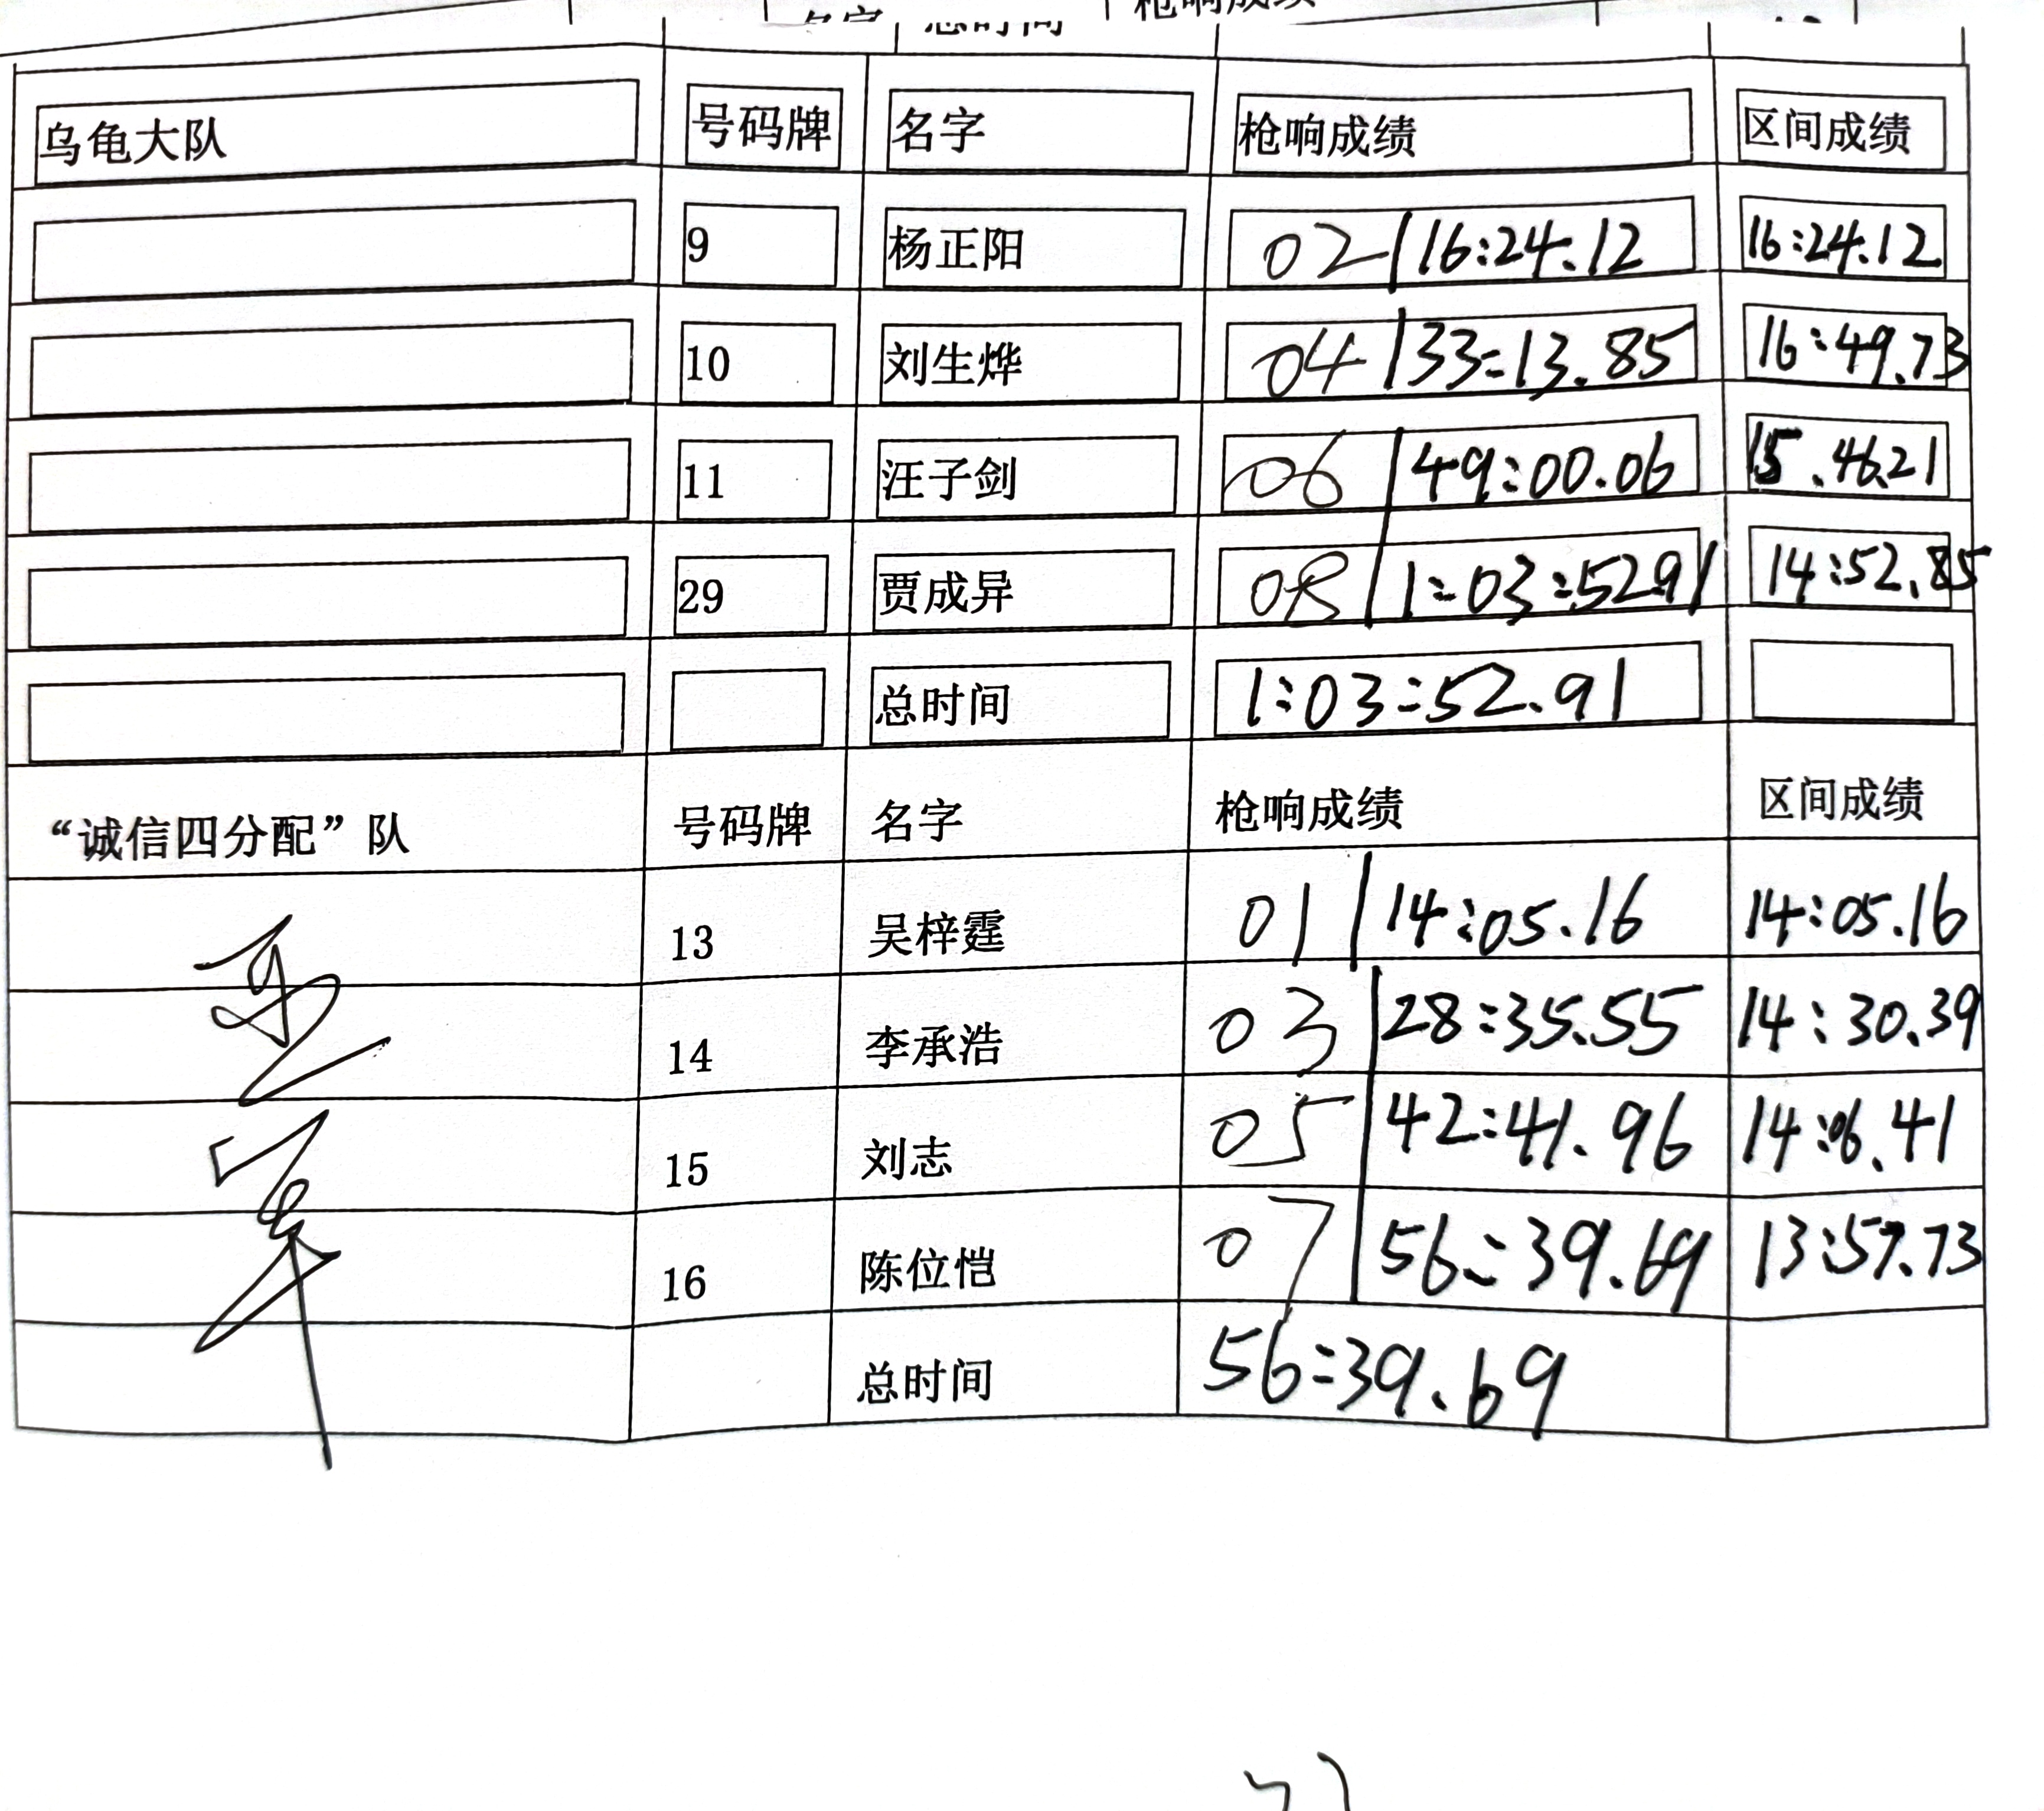 名字 总时间 枪响成绩
乌龟大队 号码牌 名字 枪响成绩 区间成绩
9 杨正阳 02 16:24.12 16:24.12
10 刘生烨 04 33:13.85 16:49.73
11 汪子剑 06 49:00.06 15.46.21
29 贾成异 08 1:03:52.91 14:52.85
总时间 1:03:52.91
“诚信四分配”队 号码牌 名字 枪响成绩 区间成绩
13 吴梓霆 01 14:05.16 14:05.16
14 李承浩 03 28:35.55 14:30.39
15 刘志 05 42:41.96 14:06.41
16 陈位恺 07 56:39.69 13:57.73
总时间 56:39.69